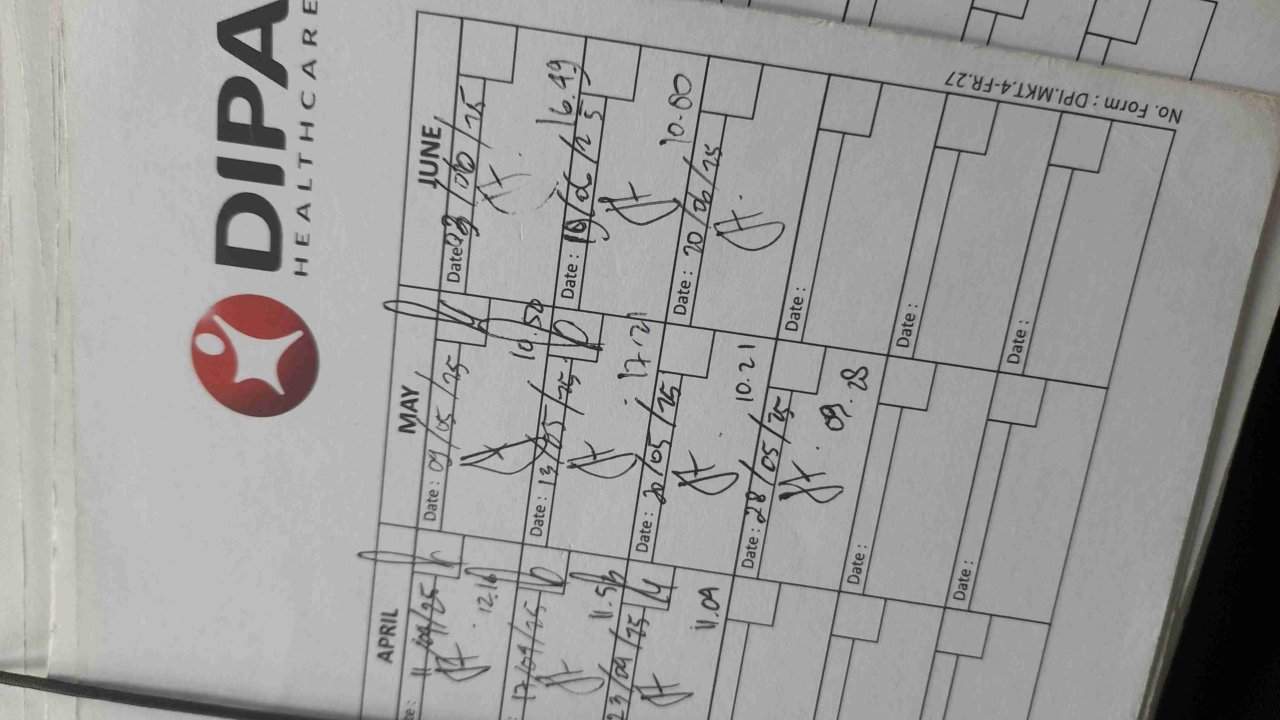 DIPA
HEALTHCARE
APRIL
11/04/25
12.16
17/04/25
11.56
23/04/25
11.09
MAY
Date : 09/05/25
10.50
Date : 13/05/25
17.21
Date : 20/05/25
10.21
Date : 28/05/25
09.28
Date :
Date :
JUNE
Date 03/06/25
16.49
Date : 10/06/25
10.00
Date : 20/06/25
Date :
Date :
Date :
No. Form : DPI.MKT.4-FR.27